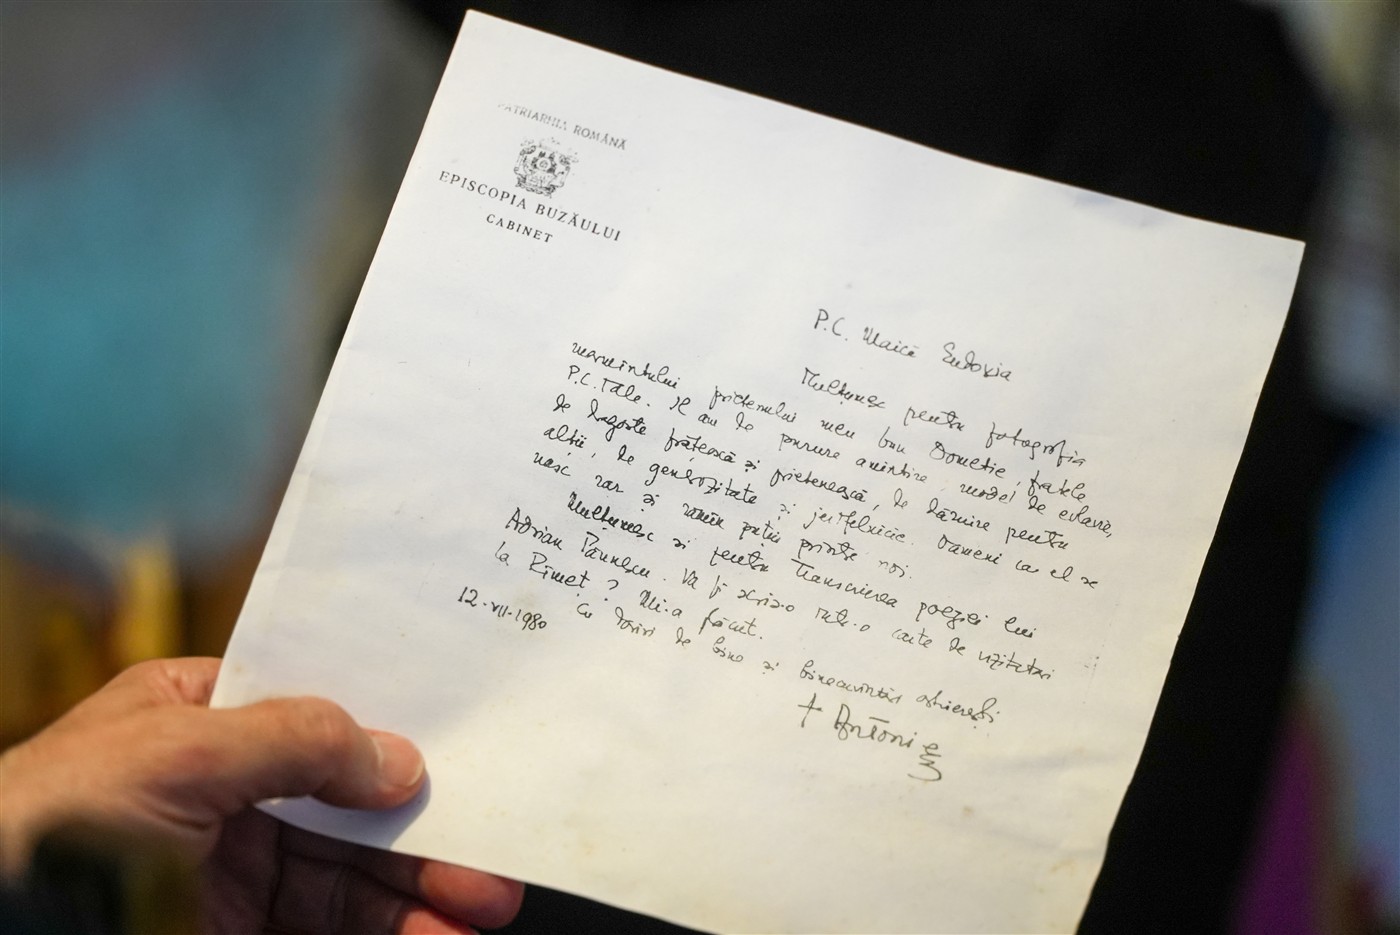 PATRIARHIA ROMÂNĂ
EPISCOPIA BUZĂULUI
CABINET
P.C. Maică Eudoxia
Mulțumesc pentru fotografia
mormîntului prietenului meu bun Dometie, fratele
P.C. Tale. Il am de purure amintire, model de evlavie,
de dragoste frățească și prietenească, de dăruire pentru
alții, de generozitate și jertfelnicie. Oameni ca el se
nasc rar și rămîn puțin printre noi.
Mulțumesc și pentru transcrierea poeziei lui
Adrian Păunescu. Va fi scris-o într-o carte de vizitatori
la Rîmeț? Mi-a plăcut.
Cu doriri de bine și binecuvîntări arhierești
12-VII-1980
† Antonie